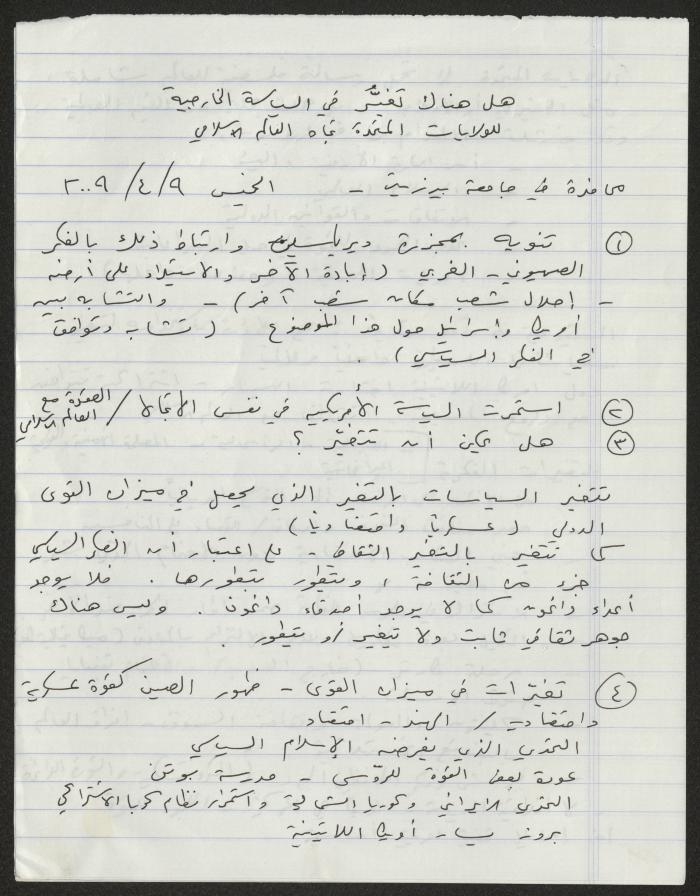 هل هناك تغيُّر في السياسة الخارجية
للولايات المتحدة تجاه العالم الاسلامي
محاضرة في جامعة بيرزيت - الخميس ٩/٤/٢٠٠٩
① تنويه بمجزرة ديرياسين وارتباط ذلك بالفكر
الصهيوني - الغربي (إبادة الآخر والاستيلاء على أرضه
- إحلال شعب مكان شعب آخر) - والتشابه بين
أمريكا وإسرائيل حول هذا الموضوع (تشابه وتوافق
في الفكر السياسي).
② استمرت السياسة الأمريكية في نفس الاتجاه / الصفوة مع
العالم الاسلامي
③ هل يمكن أن تتغيّر ؟
تتغير السياسات بالتغير الذي يحصل في ميزان القوى
الدولي (عسكرياً واقتصادياً)
كما تتغير بالتغير الثقافي - على اعتبار أن الفكر السياسي
جزء من الثقافة، ويتطور بتطورها. فلا يوجد
أعداء دائمون كما لا يوجد أصدقاء دائمون. وليس هناك
جوهر ثقافي ثابت ولا يتغير و/أو يتطور.
④ تغيّرات في ميزان القوى - ظهور الصين كقوة عسكرية
واقتصادية / الهند - اقتصاد
التحدي الذي يفرضه الإسلام السياسي
عودة بعض القوة للروسيا - مدرسة بوتن
التحدي الايراني وكوريا الشمالية واستمرار نظام كوبا الاشتراكي
بروز يسار أمريكا اللاتينية